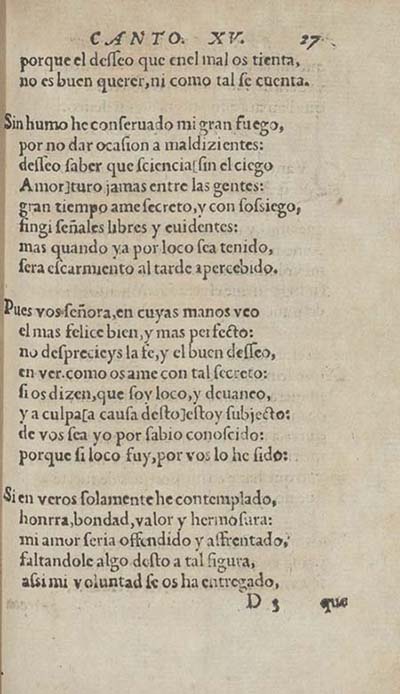 CANTO. XV. 27
porque el desseo que enel mal os tienta,
no es buen querer, ni como tal se cuenta.
Sin humo he conseruado mi gran fuego,
por no dar ocasion a maldizientes:
desseo saber que sciencia[sin el ciego
Amor]turo jamas entre las gentes:
gran tiempo ame secreto, y con sossiego,
fingi señales libres y euidentes:
mas quando ya por loco sea tenido,
sera escarmiento al tarde apercebido.
Pues vos señora, en cuyas manos veo
el mas felice bien, y mas perfecto:
no desprecieys la fe, y el buen desseo,
en ver como os ame con tal secreto:
si os dizen, que soy loco, y deuaneo,
y a culpa[a causa desto]estoy subjecto:
de vos sea yo por sabio conoscido:
porque si loco fuy, por vos lo he sido:
Si en veros solamente he contemplado,
honrra, bondad, valor y hermosura:
mi amor seria offendido y affrentado,
faltandole algo desto a tal figura,
assi mi voluntad se os ha entregado,
D 3 que